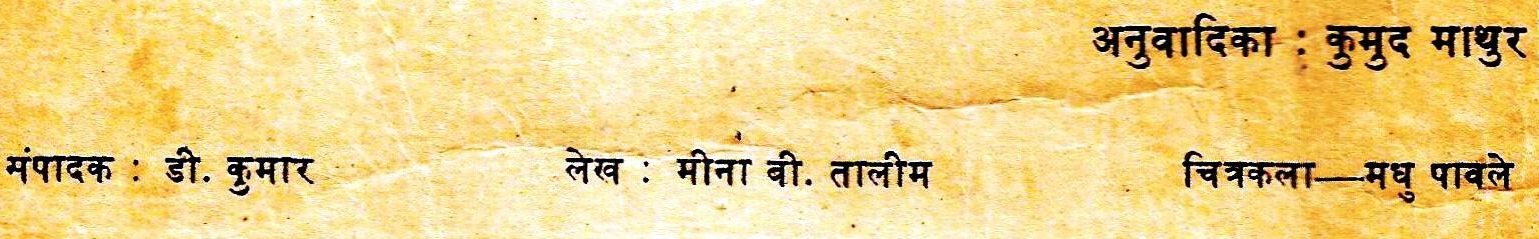 अनुवादिका : कुमुद माथुर
संपादक : डी. कुमार लेख : मीना वी. तालीम चित्रकला—मधु पावले